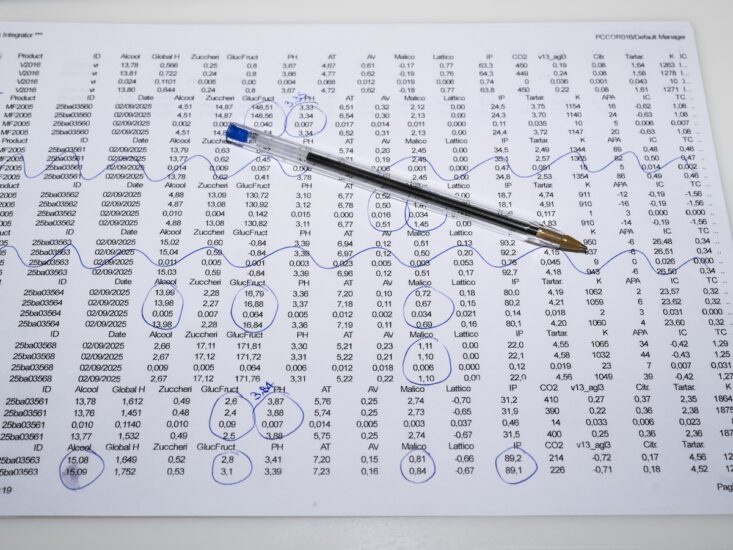 Integrator *** PCCOR016/Default Manager
Product ID Alcool Global H Zuccheri GlucFruct PH AT AV Malico Lattico IP CO2 v13_agl3 Citr. Tartar. K IC
V2016 vr 13,78 0,566 0,25 0,8 3,67 4,67 0,61 -0,17 0,77 63,3 450 0,19 0,08 1,64 1263 I...
V2016 vr 13,81 0,722 0,24 0,8 3,66 4,77 0,62 -0,19 0,76 64,3 449 0,24 0,08 1,58 1278 I...
V2016 vr 0,024 0,1101 0,005 0,00 0,004 0,068 0,012 0,019 0,006 0,74 0 0,036 0,001 0,043 10 I...
V2016 vr 13,80 0,644 0,24 0,8 3,67 4,72 0,62 -0,18 0,77 63,8 450 0,22 0,08 1,61 1271 I...
Product ID Date Alcool Zuccheri GlucFruct PH AT AV Malico Lattico IP Tartar. K APA IC TC
MF2005 25ba03560 02/09/2025 4,51 14,87 148,51 3,33 6,51 0,32 2,12 0,00 24,5 3,75 1154 16 -0,62 1,08
MF2005 25ba03560 02/09/2025 4,51 14,87 148,56 3,34 6,54 0,30 2,13 0,00 24,3 3,70 1140 24 -0,63 1,08
MF2005 25ba03560 02/09/2025 0,002 0,002 0,040 0,007 0,017 0,014 0,011 0,000 0,11 0,035 10 5 0,006 0,007
MF2005 25ba03560 02/09/2025 4,51 3,34 6,52 0,31 2,13 0,00 24,4 3,72 1147 20 -0,63 1,08
Product ID Date Alcool Zuccheri AT AV Malico Lattico IP Tartar. K APA IC TC
MF2005 25ba03561 02/09/2025 13,79 0,63 5,74 0,20 2,45 0,00 34,5 2,49 1344 89 0,48 0,46
MF2005 25ba03561 02/09/2025 13,77 0,62 0,45 0,19 2,45 0,00 2,57 1365 82 0,50 0,47
25ba03561 02/09/2025 0,014 0,009 0,057 0,001 0,00 0,47 0,091 15 0,014 0,002
25ba03561 02/09/2025 13,78 0,62 0,41 3,78 2,45 0,00 34,8 2,53 1354 86 0,49 0,46
ID Date Alcool Zuccheri GlucFruct PH AT Lattico IP Tartar. K APA IC TC
25ba03562 02/09/2025 4,88 13,09 130,72 3,10 6,77 0,00 18,7 4,74 911 -12 -0,19 -1,56
25ba03562 02/09/2025 4,87 13,08 130,92 3,12 6,78 0,50 18,1 4,91 910 -16 -0,19 -1,56
25ba03562 02/09/2025 0,010 0,004 0,142 0,015 0,000 0,016 0,034 0,117 1 3 0,000 0,000
25ba03562 02/09/2025 4,88 13,08 130,82 3,11 6,77 0,51 1,45 910 -14 -0,19 -1,56
ID Date Alcool Zuccheri GlucFruct PH AT AV Malico Lattico K APA IC TC
25ba03563 02/09/2025 15,02 0,60 -0,84 3,39 6,94 0,12 0,51 0,13 93,2 950 -6 26,48 0,34
25ba03563 02/09/2025 15,04 0,59 -0,84 3,39 6,97 0,12 0,50 0,20 92,2 4,15 937 -6 26,51 0,34
25ba03563 02/09/2025 0,011 0,005 0,001 0,003 0,023 0,005 0,003 0,053 0,76 0,045 9 0 0,026 0,000
25ba03563 02/09/2025 15,03 0,59 -0,84 3,39 6,96 0,12 0,51 0,17 92,7 4,18 943 -6 26,50 0,34
ID Date Alcool Zuccheri GlucFruct PH AT AV Malico Lattico IP Tartar. K APA IC TC
25ba03564 02/09/2025 13,99 2,28 16,79 3,36 7,20 0,10 0,72 0,18 80,0 4,19 1062 2 23,57 0,32
25ba03564 02/09/2025 13,98 2,27 16,88 3,37 7,18 0,11 0,67 0,15 80,2 4,21 1059 6 23,62 0,32
25ba03564 02/09/2025 0,005 0,007 0,064 0,005 0,012 0,002 0,034 0,021 0,14 0,018 2 3 0,031 0,000
25ba03564 02/09/2025 13,98 2,28 16,84 3,36 7,19 0,11 0,69 0,16 80,1 4,20 1060 4 23,60 0,32
ID Date Alcool Zuccheri GlucFruct PH AT AV Malico Lattico IP Tartar. K APA IC TC
25ba03568 02/09/2025 2,66 17,11 171,81 3,30 5,21 0,23 1,11 0,00 22,0 4,55 1065 34 -0,42 1,29
25ba03568 02/09/2025 2,67 17,12 171,72 3,31 5,22 0,21 1,10 0,00 22,1 4,58 1032 44 -0,43 1,25
25ba03568 02/09/2025 0,009 0,005 0,064 0,006 0,005 0,012 0,006 0,000 0,12 0,019 23 7 0,007 0,031
25ba03568 02/09/2025 2,67 17,12 171,76 3,31 5,22 0,22 1,10 0,00 22,0 4,56 1049 39 -0,42 1,27
ID Alcool Global H Zuccheri GlucFruct 3,84 PH AT AV Malico Lattico IP CO2 v13_agl3 Citr. Tartar. K
25ba03561 13,76 1,612 0,49 2,6 3,87 5,76 0,25 2,74 -0,70 31,2 410 0,27 0,37 2,35 1864
25ba03561 13,78 1,451 0,48 2,4 3,88 5,74 0,25 2,73 -0,65 31,9 390 0,22 0,36 2,38 1875
25ba03561 0,010 0,1140 0,010 0,09 0,007 0,014 0,005 0,003 0,037 0,46 14 0,033 0,006 0,023
25ba03561 13,77 1,532 0,49 2,5 3,88 5,75 0,25 2,74 -0,67 31,5 400 0,25 0,36 2,36 187
ID Alcool Global H Zuccheri GlucFruct PH AT AV Malico Lattico IP CO2 v13_agl3 Citr. Tartar.
25ba03563 15,08 1,649 0,52 2,8 3,41 7,20 0,15 0,81 -0,66 89,2 214 -0,72 0,17 4,56 12
25ba03563 15,09 1,752 0,53 3,1 3,39 7,23 0,16 0,84 -0,67 89,1 226 -0,71 0,18 4,52 12
:19 Pag